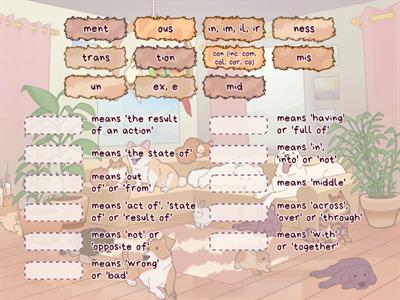 ment
ous
in, im, il, ir
ness
trans
tion
con (inc. com,
col, cor, co)
mis
un
ex, e
mid
means 'the result
of an action'
means 'the state of'
means 'out
of' or 'from'
means 'act of', 'state
of' or 'result of'
means 'not' or
'opposite of'
means 'wrong'
or 'bad'
means 'having'
or 'full of'
means 'in',
'into' or 'not'
means 'middle'
means 'across',
'over' or 'through'
means 'with'
or 'together'